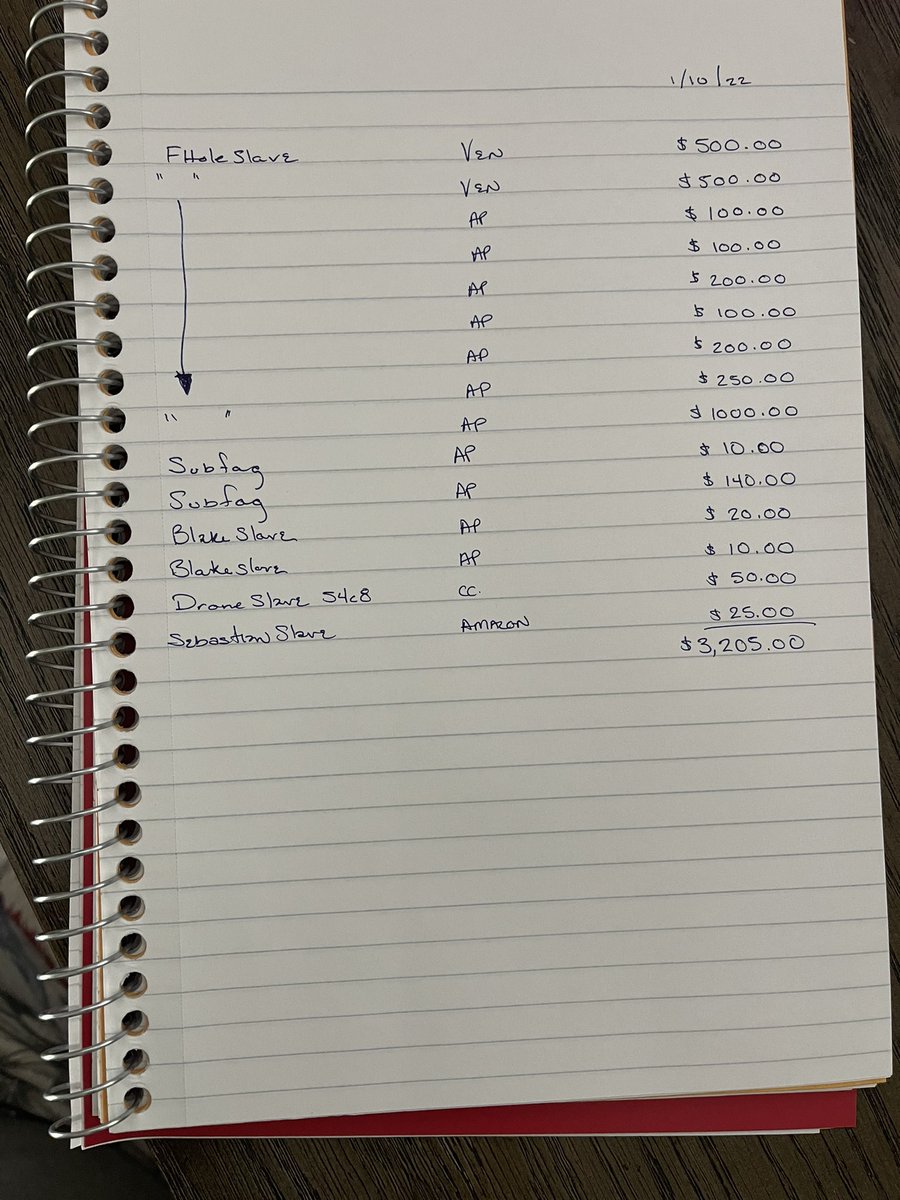 1/10/22
FHole Slave VEN $500.00
" " VEN $500.00
AP $100.00
AP $100.00
AP $200.00
AP $100.00
AP $200.00
AP $250.00
" " AP $1000.00
Subfag AP $10.00
Subfag AP $140.00
Blake Slave AP $20.00
Blake Slave AP $10.00
Drone Slave 54c8 CC. $50.00
Sebastian Slave AMAZON $25.00
$3,205.00